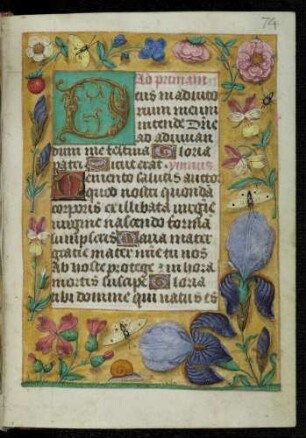 74
Ad primam
Deus in adiuto
rium meum
intende Dne
ad adiuuan
dum me festina Gloria
patri Sicut erat ymnus
Memento salutis auctor
quod nostri quonda
corporis ex illibata virgie
nascendo forma
sumpseris Maria mater
gratie mater mie tu nos
ab hoste protege z in hora
mortis suscipe Gloria
tibi domine qui natus es